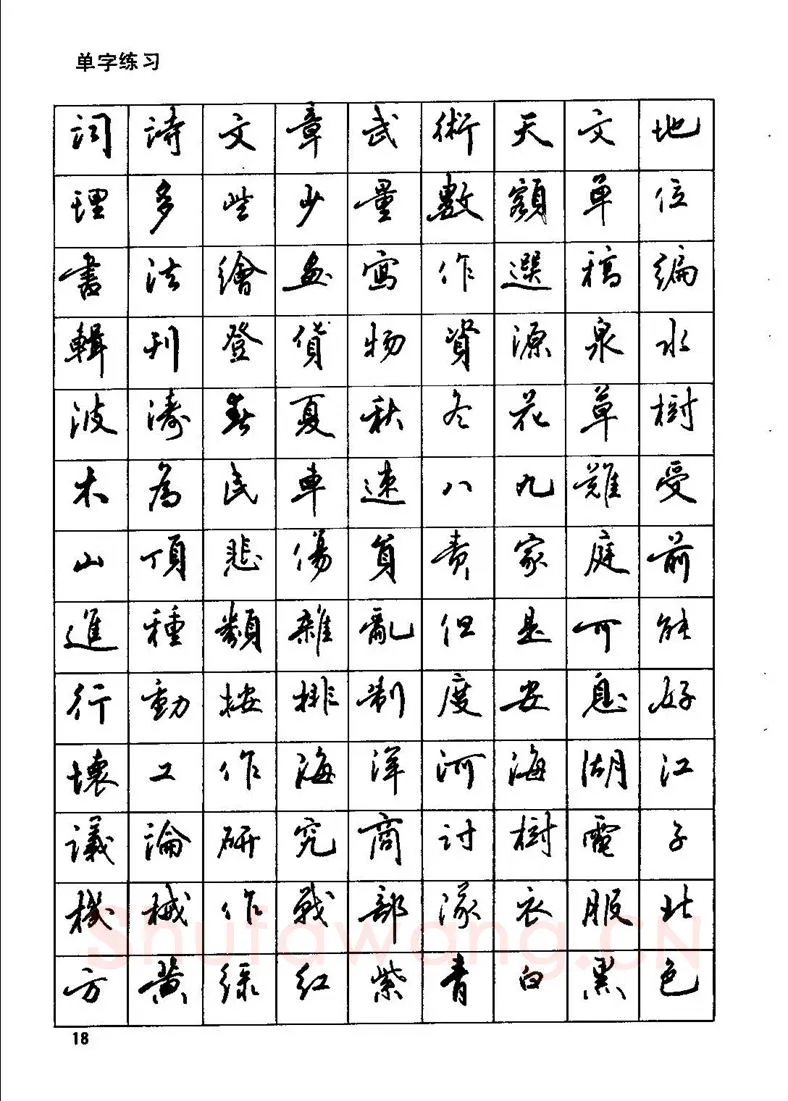 单字练习
词詩文章武術天文地
理多些少量數額單位
書法繪画寫作選稿編
輯刊登貨物資源泉水
波濤春夏秋冬花草樹
木為民車速八九難受
山頂悲傷負責家庭前
進種類雜亂但是可能
行動按排制度安息好
壞工作海洋河海湖江
議論研究商討樹電子
機械作戰部隊衣服北
方黃綠紅紫青白黑色
18
Shufawang.CN